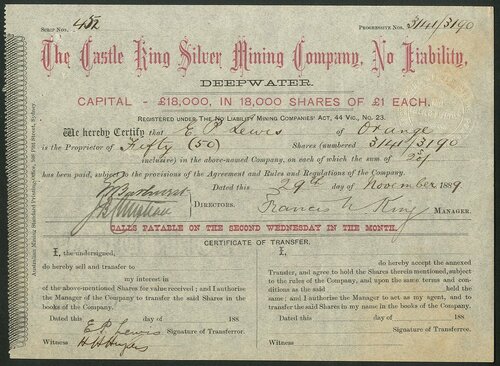 Scrip Nos. 452 Progressive Nos. 3141/3190
The Castle King Silver Mining Company, No Liability,
DEEPWATER.
CAPITAL - £18,000, IN 18,000 SHARES OF £1 EACH.
Registered under The No Liability Mining Companies' Act, 44 Vic., No. 23.
We hereby Certify that E P Lewis of Orange
is the Proprietor of Fifty (50) Shares (numbered 3141/3190
inclusive) in the above-named Company, on each of which the sum of
has been paid, subject to the provisions of the Agreement and Rules and Regulations of the Company.
Dated this 29th day of November 1889
Directors. Francis N King Manager.
CALLS PAYABLE ON THE SECOND WEDNESDAY IN THE MONTH.
CERTIFICATE OF TRANSFER.
I, the undersigned,
do hereby sell and transfer to
my interest in
of the above-mentioned Shares for value received; and I authorise
the Manager of the Company to transfer the said Shares in the
books of the Company.
Dated this day of 188
E P Lewis Signature of Transferror.
Witness
I,
do hereby accept the annexed
Transfer, and agree to hold the Shares therein mentioned, subject
to the rules of the Company, and upon the same terms and condi-
tions as the said held the
same; and I authorise the Manager to act as my agent, and to
transfer the said Shares in my name in the books of the Company.
Dated this day of 188
Signature of Transferee.
Witness
Australian Mining Standard Printing Office, 108 Pitt Street, Sydney